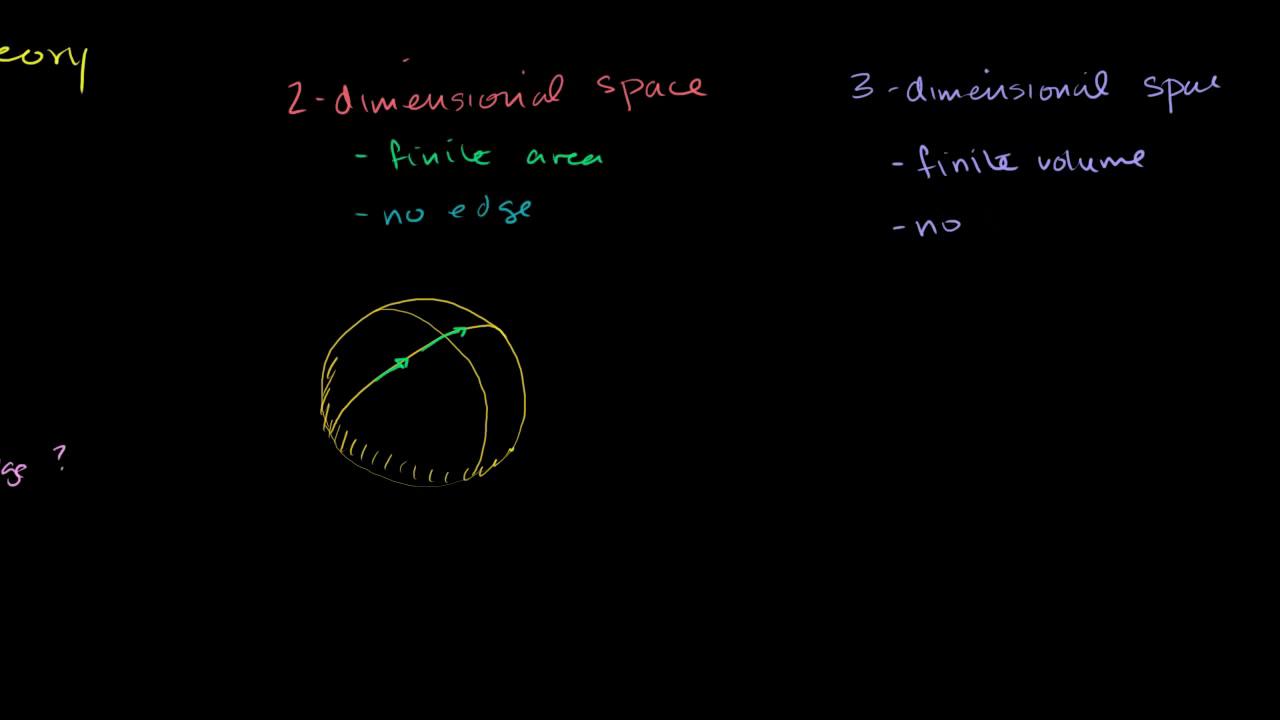 eory
2-dimensional space
- finite area
- no edge
3-dimensional space
- finite volume
- no
ge ?